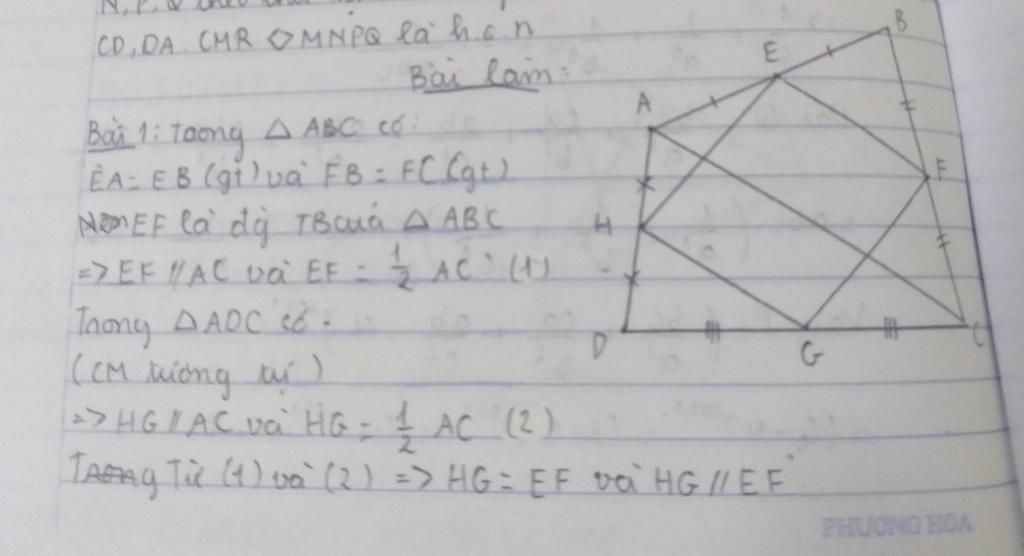 N, P, Q
CD, DA. CMR ◇MNPQ là h.c.n
Bài làm:
Bài 1: Trong △ ABC có:
EA = EB (gt) và FB = FC (gt)
Nên EF là đg TB của △ ABC
=> EF // AC và EF = 1/2 AC (1)
Trong △ADC có:
(CM tương tự)
=> HG // AC và HG = 1/2 AC (2)
Trong Từ (1) và (2) => HG = EF và HG // EF
B
E
A
F
H
D
G
C
PHƯƠNG HOA